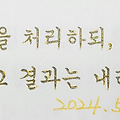 을 처리하되,
고 결과는 내
2024.5